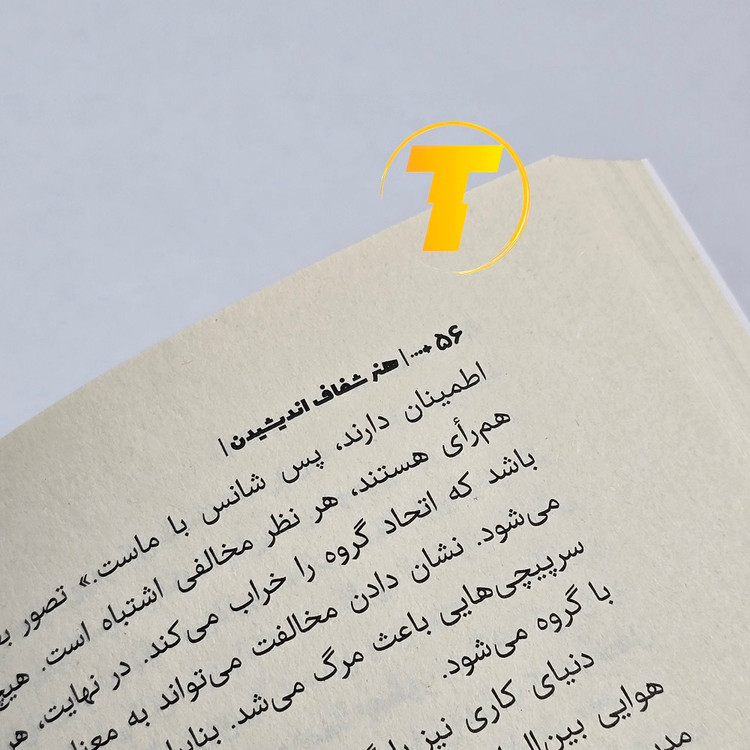 T
۵۶ | هنر شفاف اندیشیدن |
اطمینان دارند، پس شانس با ماست.» تصور
هم‌رأی هستند، هر نظر مخالفی اشتباه است. هیچ
باشد که اتحاد گروه را خراب می‌کند. در نهایت، هر
می‌شود. نشان دادن مخالفت می‌تواند به
سرپیچی‌هایی باعث مرگ می‌شد.
با گروه می‌شود.
دنیای کاری نیز
هوایی